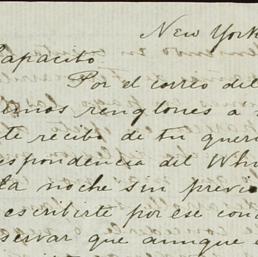 New York
Papacito
Por el correo del
renglones a
te recibo de tu queri
espondencia del Whi
ta noche sin previo
escribirte por ese cond
servar que aunque